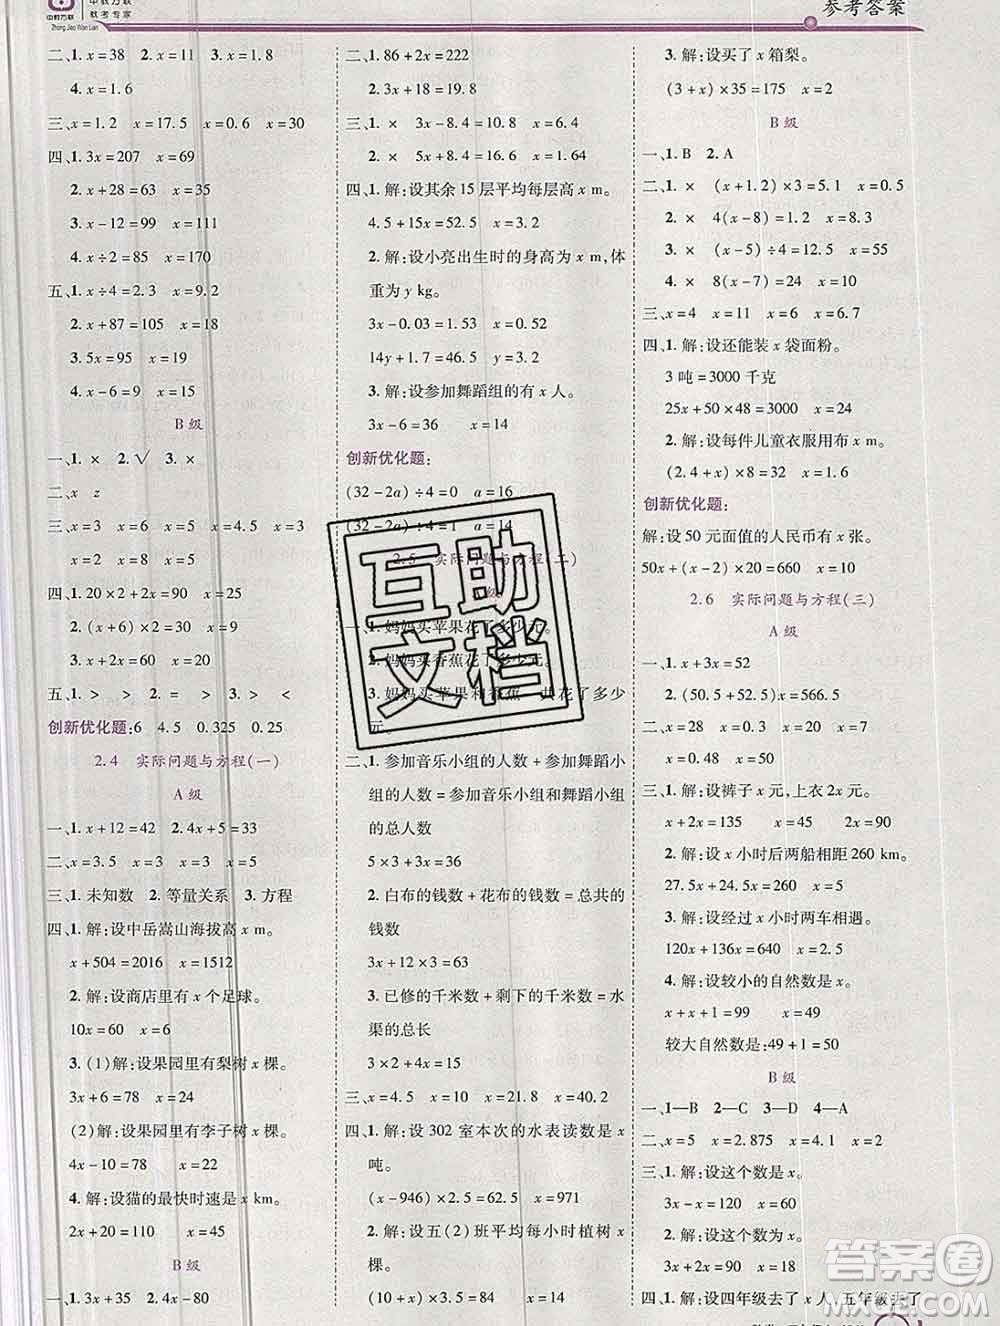 中教万联
Zhong Jiao Wan Lian
中教万联
教考专家
参考答案
二、1. x=38 2. x=11 3. x=1.6
4. x=1.6
三、x=1.2 x=17.5 x=0.6 x=30
四、1. 3x=207 x=69
2. x+28=63 x=35
3. x-12=99 x=111
4. x÷2=85 x=170
五、1. x÷4=2.3 x=9.2
2. x+87=105 x=18
3. 5x=95 x=19
4. x-6=9 x=15
B 级
一、1. × 2. √ 3. ×
二、x z
三、x=3 x=6 x=4.5 x=3
x=2 x=8 x=5
四、1. 20×2+20x=140 x=5
2. 3x=6 x=2
3. (x+3)÷4=3 x=9
五、1. > > > < > <
创新优化题:6 4.5 0.325 0.25
2.4 实际问题与方程(一)
A 级
一、1. x+12=42 2. 4x+5=69
二、x=3.5 x=3 x=2
三、1. 未知数 2. 等量关系 3. 方程
四、1. 解:设中岳嵩山海拔高 x m。
x+504=2016 x=1512
2. 解:设商店里有 x 个足球。
10x=60 x=6
3. (1)解:设果园里有梨树 x 棵。
3x+6=78 x=24
(2)解:设果园里有李子树 x 棵。
4x-10=78 x=22
4. 解:设猫的最快时速是 x km。
2x+20=110 x=45
B 级
一、1. 3x+35 2. 4x-80
二、1. 86+2x=222
2. 3x+18=19.8
三、1. × 3x-8.4=10.8 x=6.4
2. × 5x+4.8=13 x=1.64
四、1. 解:设其余 15 层平均每层高 x m。
4.5+15x=52.5 x=3.2
2. 解:设小亮出生时的身高为 x m,体
重为 y kg。
3x-0.03=1.53 x=0.52
14y+1=46.5 y=3.25
3. 解:设参加舞蹈组的有 x 人。
3x-6=36 x=14
创新优化题:
(32-2a)÷4=0 a=16
(32-2a)÷4=1 a=14
2.5 实际问题与方程(二)
级
一、1. 妈妈买苹果花了多少元。
2. 妈妈买香蕉花了多少元。
3. 妈妈买苹果和香蕉一共花了多少
元
二、1. 参加音乐小组的人数+参加舞蹈小
组的人数=参加音乐小组和舞蹈小组
的总人数
5×3+3x=36
2. 白布的钱数+花布的钱数=总共的
钱数
3x+3×2=63
3. 已修的千米数+剩下的千米数=水
渠的总长
3×2+4x=15
三、x=4.5 x=10 x=3
四、1. 解:设 302 室本次的水表读数是 x
吨。
(x-946)×2.5=62.5 x=971
2. 解:设五(2)班平均每小时植树 x
棵。
(10+x)×4.5=76.5 x=7
3. 解:设买了 x 箱梨。
(3+x)×35=175 x=2
B 级
一、1. B 2. A
二、1. × (x+1.2)×3=5.1 x=0.5
2. × 4(x-8)=1.2 x=8.3
3. × (x-5)÷4=12.5 x=55
4. × 8(x-7)=24 x=10
三、x=4 x=11 x=3 x=6.7
四、1. 解:设还能装 x 袋面粉。
3 吨=3000 千克
25x+50×48=3000 x=24
2. 解:设每件儿童衣服用布 x m。
(2.4+x)×30=126 x=1.8
创新优化题:
解:设 50 元面值的人民币有 x 张。
50x+(x-2)×20=660 x=10
2.6 实际问题与方程(三)
A 级
一、1. x+3x=52
2. (50.5+52.5)x=566.5
二、x=28 x=0.3 x=0.7
x=20 x=4 x=0.8
三、1. 解:设裤子 x 元,上衣 2x 元。
x+2x=135 x=45 2x=90
2. 解:设 x 小时后两船相距 260 km。
27.5x+24.5x=260 x=5
3. 解:设经过 x 小时两车相遇。
120x+136x=640 x=2.5
4. 解:设较小的自然数是 x。
x+x+1=99 x=49
较大自然数是:49+1=50
B 级
一、1—B 2—C 3—D 4—A
二、x=5 x=2.875 x=2
三、1. 解:设这个数是 x。
3x-x=120 x=60
2. 解:设这个数为 x。
3x+2x=50 x=10
四、1. 解:设四年级去了 x 人,五年级去了
互助文档
答案圈
MXQE.COM